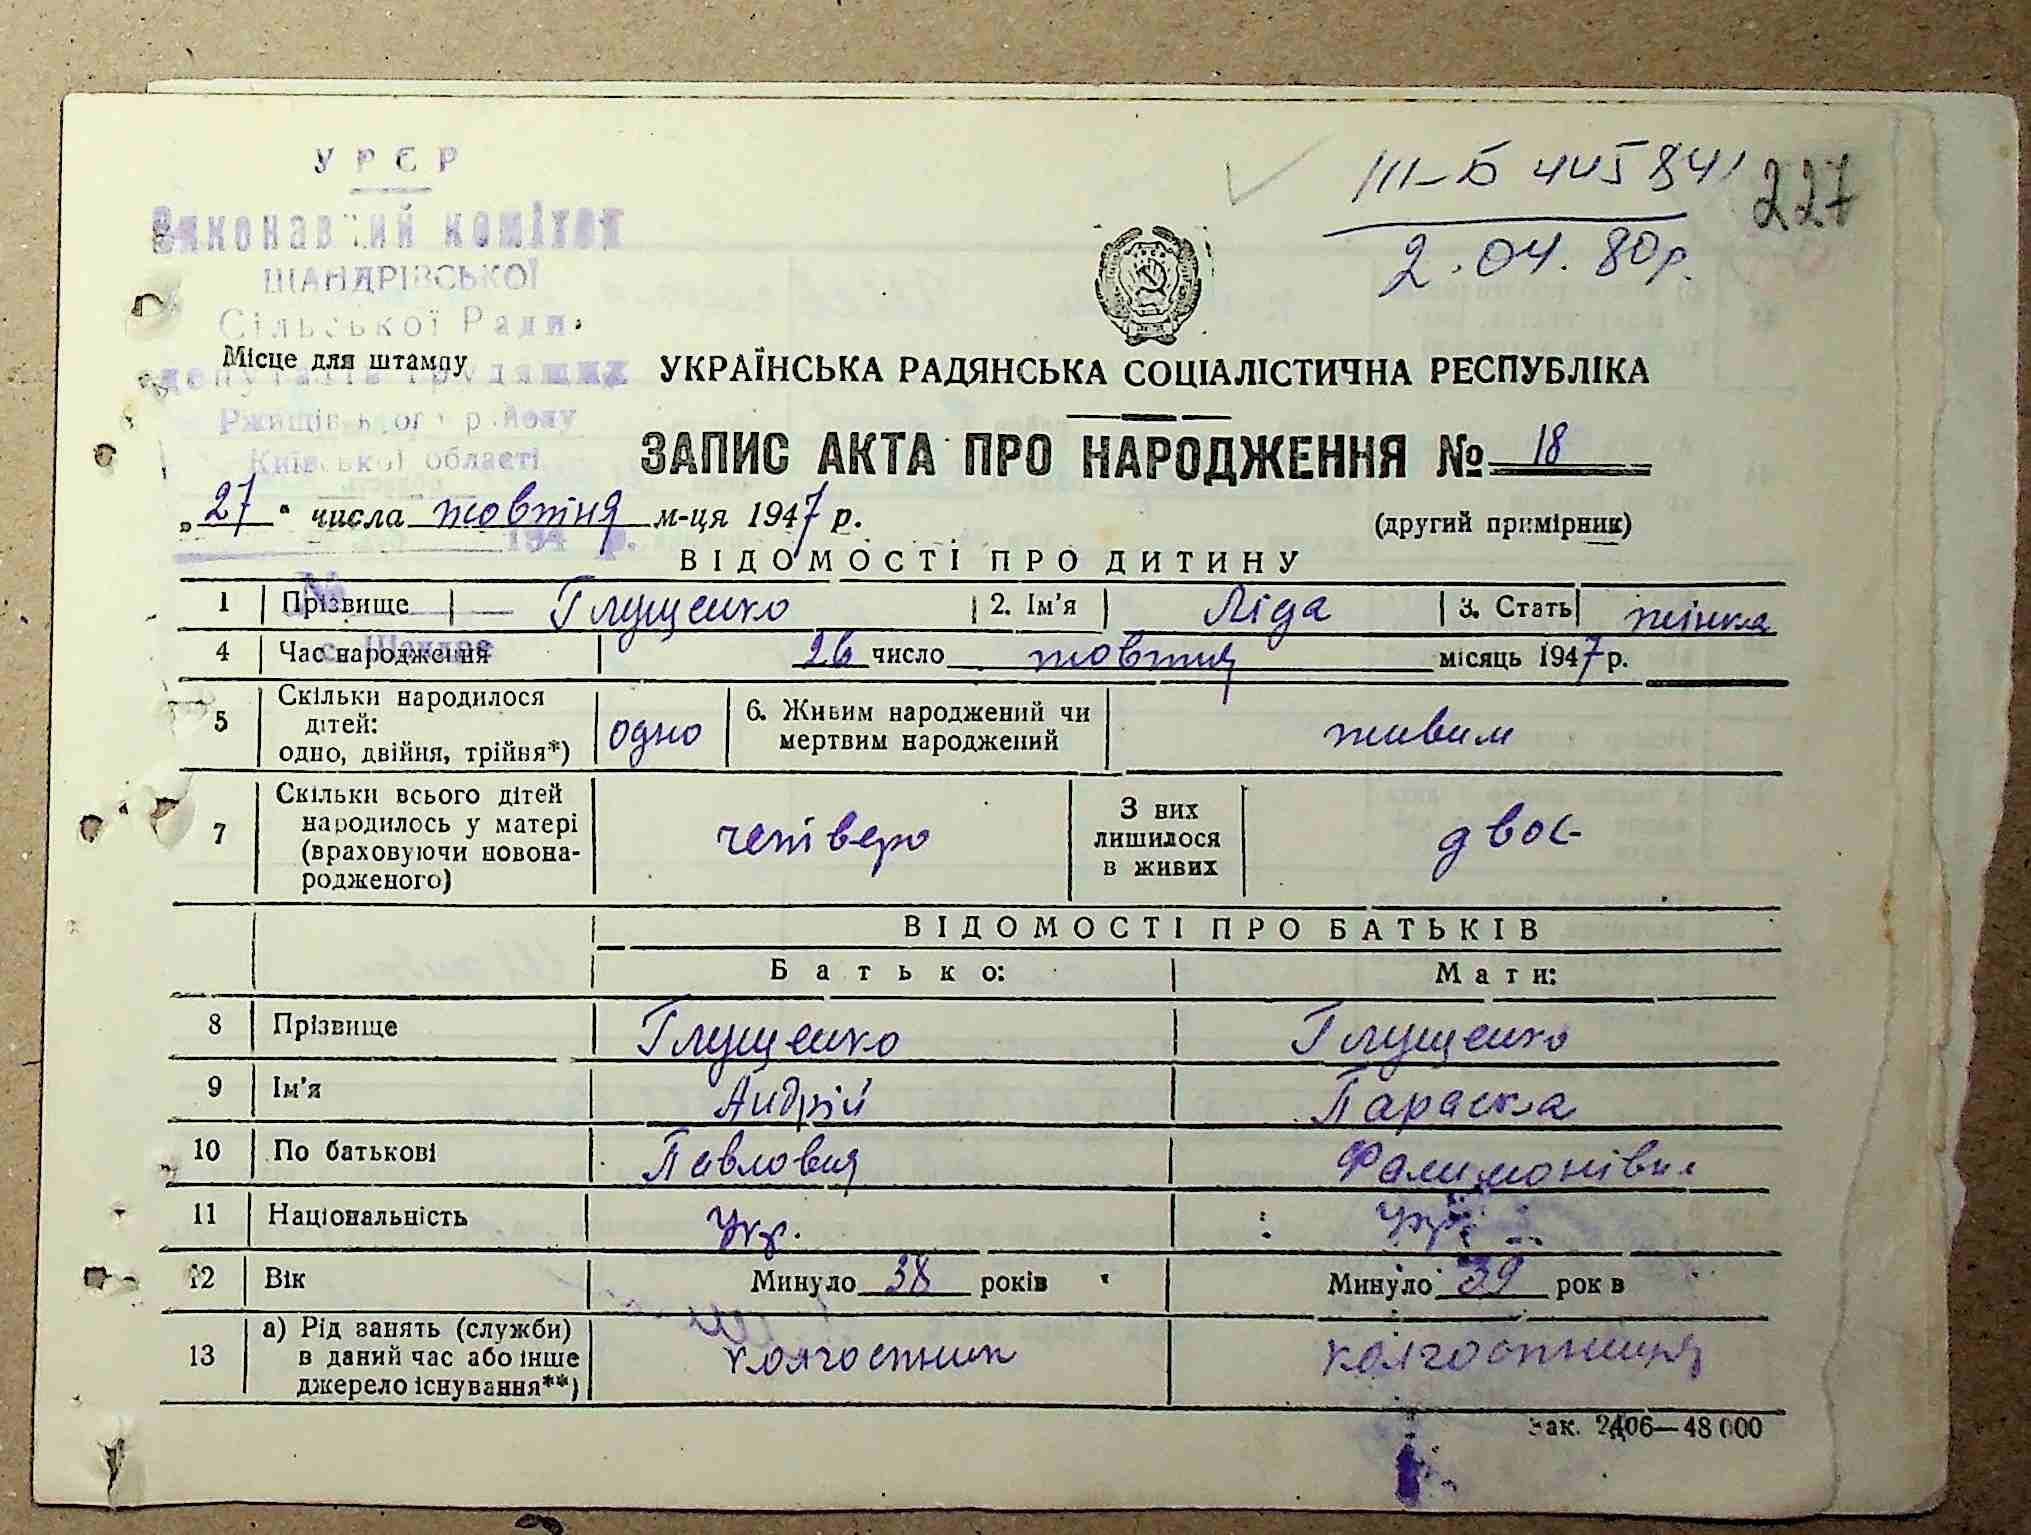 УРЄР
Виконавчий комітет
ШАНДРІВСЬКОЇ
Сільської Ради
Місце для штампу
депутатів трудящих
Ржищівського району
Київської області
194 р.
№
с. Шандра
III-Б 445841
2.04.80р.
227
УКРАЇНСЬКА РАДЯНСЬКА СОЦІАЛІСТИЧНА РЕСПУБЛІКА
ЗАПИС АКТА ПРО НАРОДЖЕННЯ № 18
„27“ числа жовтня м-ця 1947 р.
(другий примірник)
ВІДОМОСТІ ПРО ДИТИНУ
1 Прізвище Глущенко 2. Ім'я Ліда 3. Стать жінка
4 Час народження 26 число жовтня місяць 1947 р.
5 Скільки народилося дітей: одно, двійня, трійня*) одно 6. Живим народжений чи мертвим народжений живим
7 Скільки всього дітей народилось у матері (враховуючи новонародженого) четверо З них лишилося в живих двоє
ВІДОМОСТІ ПРО БАТЬКІВ
Батько: Мати:
8 Прізвище Глущенко Глущенко
9 Ім'я Андрій Параска
10 По батькові Павлович Филимонівна
11 Національність Укр. Укр
12 Вік Минуло 38 років Минуло 39 років
13 а) Рід занять (служби) в даний час або інше джерело існування**) колгоспник колгоспниця
Зак. 2406—48 000